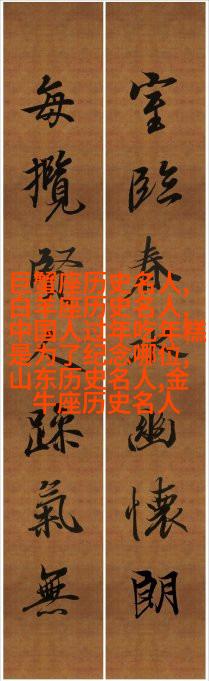 室臨春幽懷朗
每攬踈氣無
巨蟹座历史名人,
白羊座历史名人,
中国人过年吃年糕
是为了纪念哪位,
山东历史名人,金
牛座历史名人